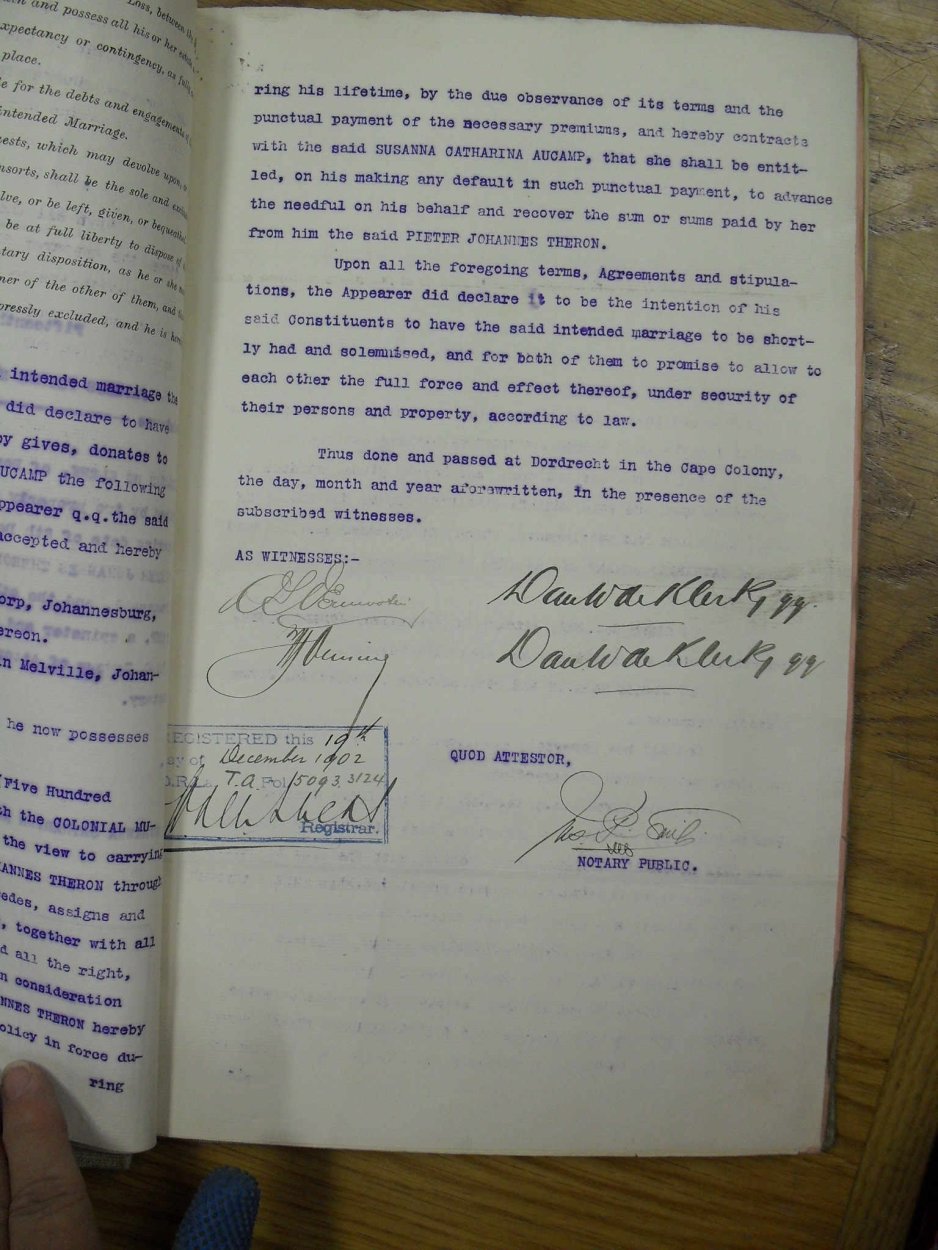 Loss, between the
and possess all his or her estate
expectancy or contingency, as full
place.
for the debts and engagements
intended Marriage.
which may devolve upon
shall be the sole and
or be left, given, or bequeathed
be at full liberty to dispose of
disposition, as he or she
of the other of them, and
excluded, and he is
intended marriage the
did declare to have
gives, donates to
AUCAMP the following
Appearer q.q.the said
accepted and hereby
Johannesburg,
in Melville, Johan-
he now possesses
Five Hundred
the COLONIAL MU-
the view to carrying
JOHANNES THERON through
cedes, assigns and
, together with all
all the right,
consideration
THERON hereby
policy in force du-
ring
ring his lifetime, by the due observance of its terms and the
punctual payment of the necessary premiums, and hereby contracts
with the said SUSANNA CATHARINA AUCAMP, that she shall be entit-
led, on his making any default in such punctual payment, to advance
the needful on his behalf and recover the sum or sums paid by her
from him the said PIETER JOHANNES THERON.
Upon all the foregoing terms, Agreements and stipula-
tions, the Appearer did declare it to be the intention of his
said Constituents to have the said intended marriage to be short-
ly had and solemnised, and for both of them to promise to allow to
each other the full force and effect thereof, under security of
their persons and property, according to law.
Thus done and passed at Dordrecht in the Cape Colony,
the day, month and year aforewritten, in the presence of the
subscribed witnesses.
AS WITNESSES:-
Dan W de Klerk, qq.
Dan W de Klerk, qq
REGISTERED this 19th
day of December 1902
T.A. Fol 3124
Registrar.
QUOD ATTESTOR,
NOTARY PUBLIC.